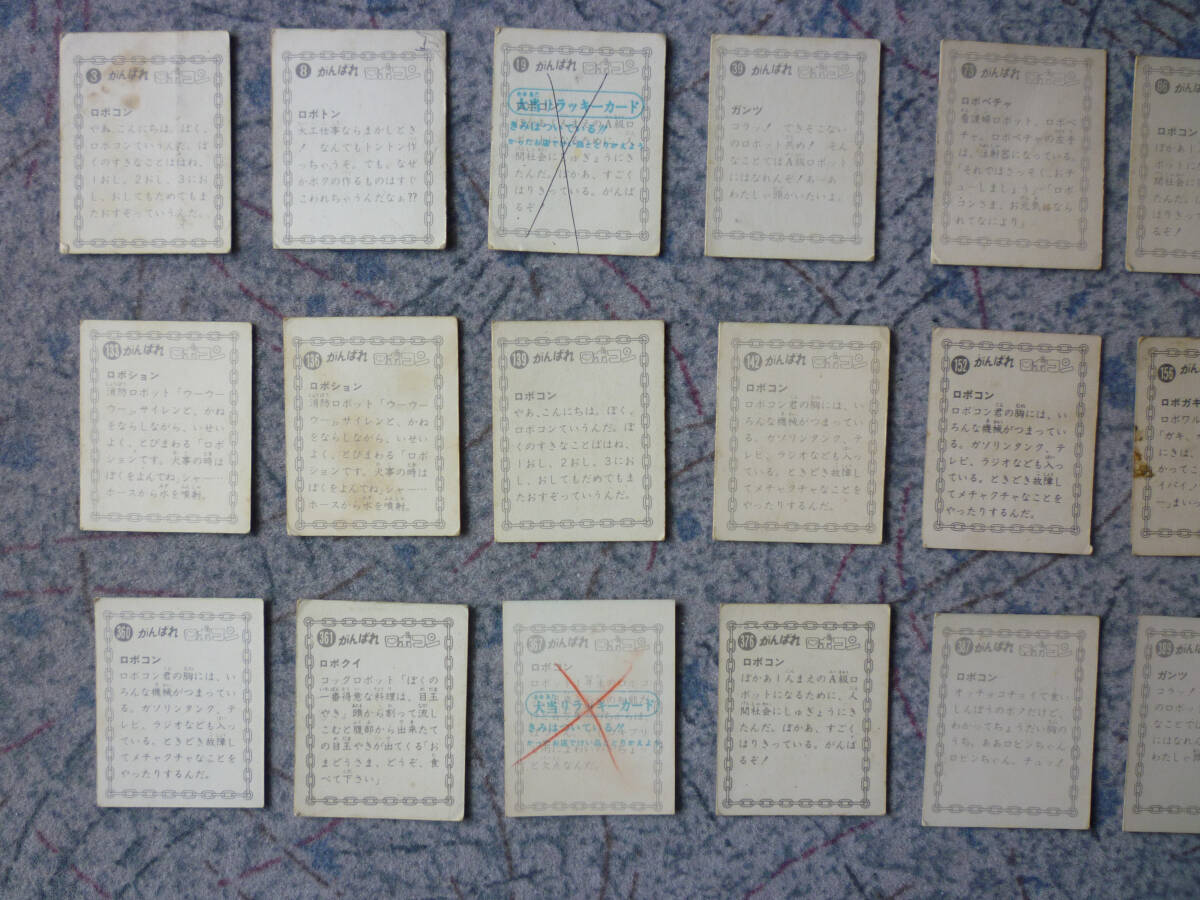 3 がんばれ ロボコン
ロボコン
やあ、こんにちは。ぼく、
ロボコンていうんだ。ぼ
くのすきなことばはね、
1おし、2おし、3にお
し、おしてもだめでもま
たおすぞっていうんだ。
8 がんばれ ロボコン
ロボトン
大工仕事ならまかしとき
！ なんでもトントン作
っちゃうぞ。でも、なぜ
かボクの作るものはすぐ
こわれちゃうんだなぁ??
19 がんばれ
大当りラッキーカード
きみはついている!!
間社会にしゅぎょうにき
たんだ。ぼかあ、すごく
はりきっている。がんば
るぞ！
39 がんばれ ロボコン
ガンツ
コラッ！ できそこない
のロボット共め！ そん
なことではA級ロボット
にはなれんぞ！あーあ
わたしゃ頭がいたいよ。
79 がんばれ ロボコン
ロボペチャ
看護婦ロボット、ロボペ
チャ。ロボペチャの左手
は、注射器になっている。
「それではさっそく、おチ
ューしましょう」「ロボ
コンさま、お元気になら
れてなにより」
86 がんば
ロボコン
ぼかあ1
ボットに
間社会に
たんだ。
はりきっ
るぞ！
133 がんばれ ロボコン
ロボション
消防ロボット「ウーウー
ウー」サイレンと、かね
をならしながら、いせい
よく、とびまわる「ロボ
ションです。火事の時は
ぼくをよんでね」シャー……
ホースから水を噴射。
136 がんばれ ロボコン
ロボション
消防ロボット「ウーウー
ウー」サイレンと、かね
をならしながら、いせい
よく、とびまわる「ロボ
ションです。火事の時は
ぼくをよんでね」シャー……
ホースから水を噴射。
139 がんばれ ロボコン
ロボコン
やあ、こんにちは。ぼく、
ロボコンていうんだ。ぼ
くのすきなことばはね、
1おし、2おし、3にお
し、おしてもだめでもま
たおすぞっていうんだ。
142 がんばれ ロボコン
ロボコン
ロボコン君の胸には、い
ろんな機械がつまってい
る。ガソリンタンク、テ
レビ、ラジオなども入っ
ている。ときどき故障し
てメチャクチャなことを
やったりするんだ。
152 がんばれ ロボコン
ロボコン
ロボコン君の胸には、い
ろんな機械がつまってい
る。ガソリンタンク、テ
レビ、ラジオなども入っ
ている。ときどき故障し
てメチャクチャなことを
やったりするんだ。
156 がん
ロボガキ
ロボワル
「ガキ、
にきは、
かってこ
イバイノ
ー」まいっ
360 がんばれ ロボコン
ロボコン
ロボコン君の胸には、い
ろんな機械がつまってい
る。ガソリンタンク、テ
レビ、ラジオなども入っ
ている。ときどき故障し
てメチャクチャなことを
やったりするんだ。
361 がんばれ ロボコン
ロボクイ
コックロボット「ぼくの
一番得意な料理は、目玉
やき」頭から割って流し
こむと腹部から出来たて
の目玉やきが出てくる「お
まどうさま、どうぞ、食
べて下さい」
367 がんばれ ロボコン
ロボコン
大当りラッキーカード
きみはついている!!
と欠点なんだ。
376 がんばれ ロボコン
ロボコン
ぼかあ1人まえのA級ロ
ボットになるために、人
間社会にしゅぎょうにき
たんだ。ぼかあ、すごく
はりきっている。がんば
るぞ！
387 がんばれ ロボコン
ロボコン
うち、ああロビンちゃん
ロビンちゃん、チュッ！
389 がん
ガンツ
コラッ！
のロボッ
なことで
にはなれん
わたしゃ頭